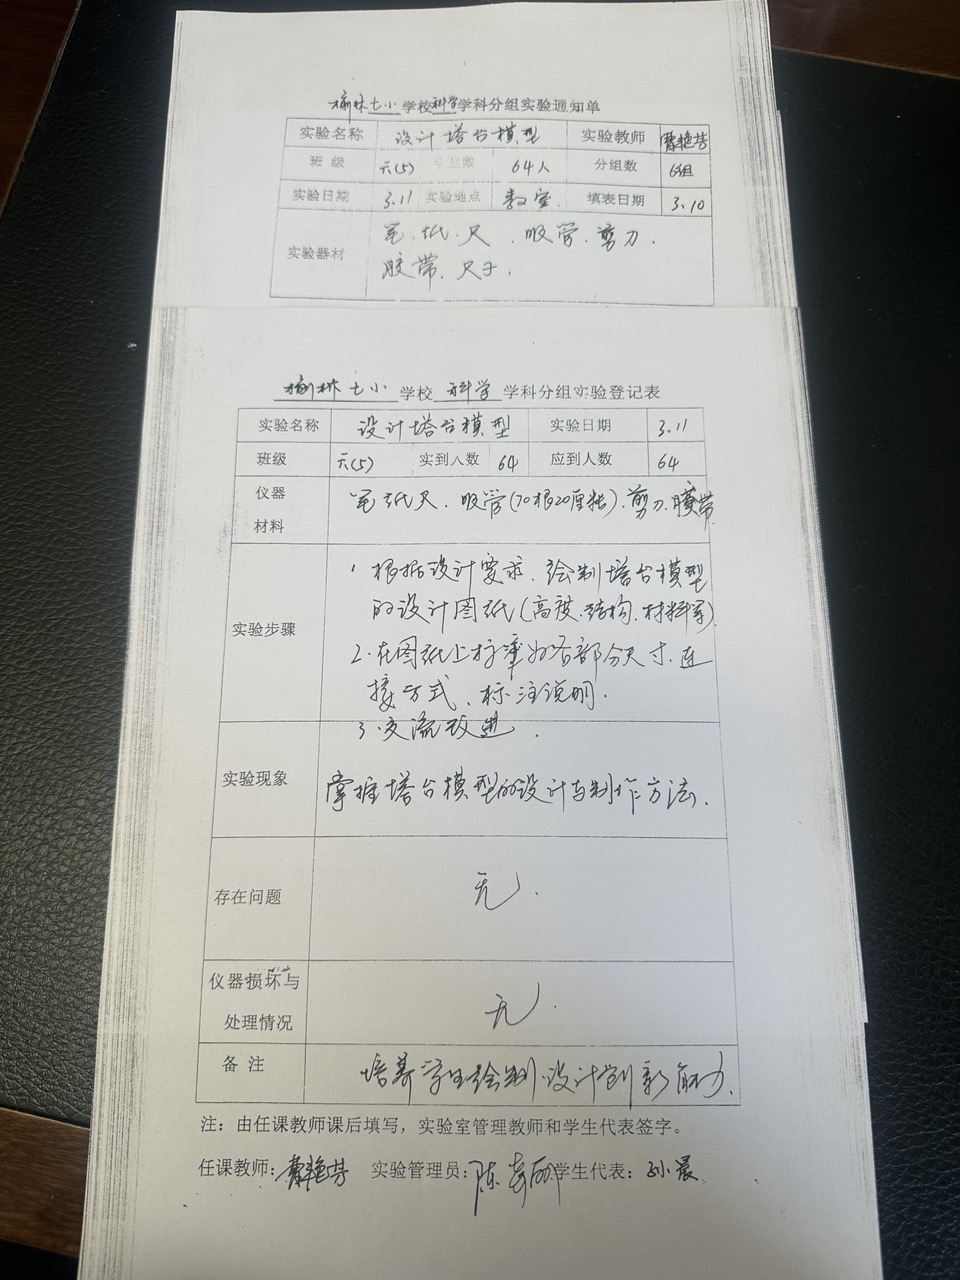 榆林七小学校科学学科分组实验通知单
实验名称 设计塔台模型 实验教师 艳芳
班 级 六(5) 学生数 64人 分组数 6组
实验日期 3.11 实验地点 教室 填表日期 3.10
实验器材 笔.纸.尺.吸管.剪刀.
胶带.尺子.
榆林七小 学校 科学 学科分组实验登记表
实验名称 设计塔台模型 实验日期 3.11
班级 六(5) 实到人数 64 应到人数 64
仪器 笔纸尺.吸管(70根20厘米).剪刀.胶带
材料
1 根据设计要求、绘制塔台模型
的设计图纸(高度.结构.材料等)
实验步骤
2.在图纸上标准好各部分尺寸.连
接方式、标注说明.
3.交流改进.
实验现象 掌握塔台模型的设计与制作方法.
存在问题 无.
仪器损坏与
处理情况 无.
备 注 培养学生绘制.设计创新能力.
注：由任课教师课后填写，实验室管理教师和学生代表签字。
任课教师: 艳芳 实验管理员: 陈 丽 学生代表: 小晨